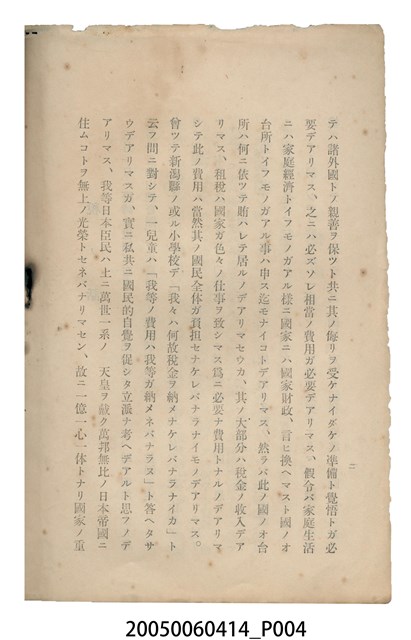 テハ諸外國トノ親善ヲ保ツト共ニ其ノ侮リヲ受ケナイダケノ準備ト覺悟トガ必
要デアリマス、之ニハ必ズソレ相當ノ費用ガ必要デアリマス、假令バ家庭生活
ニハ家庭經濟トイフモノガアル樣ニ國家ニハ國家財政、言ヒ換ヘマスト國ノオ
台所トイフモノガアル事ハ申ス迄モナイコトデアリマス、然ラバ此ノ國ノオ台
所ハ何ニ依ツテ賄ハレテ居ルノデアリマセウカ、其ノ大部分ハ稅金ノ收入デア
リマス、租稅ハ國家ガ色々ノ仕事ヲ致シマス爲ニ必要ナ費用トナルノデアリマ
シテ此ノ費用ハ當然其ノ國民全体ガ負担セナケレバナラナイモノデアリマス。
曾ツテ新潟縣ノ或ル小學校デ「我々ハ何故稅金ヲ納メナケレバナラナイカ」ト
云フ問ニ對シテ、一兒童ハ「我等ノ費用ハ我等ガ納メネバナラヌ」ト答ヘタサ
ウデアリマスガ、實ニ私共ニ國民的自覺ヲ促シタ立派ナ考ヘデアルト思フノデ
アリマス、我等日本臣民ハ上ニ萬世一系ノ　天皇ヲ戴ク萬邦無比ノ日本帝國ニ
住ムコトヲ無上ノ光榮トセネバナリマセン、故ニ一億一心一体トナリ國家ノ重
二
20050060414_P004